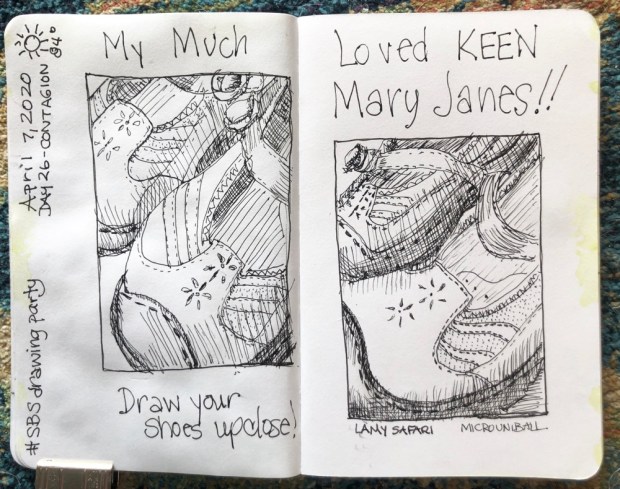 My Much
Loved KEEN
Mary Janes!!
April 7, 2020
84°
DAY 26-CONTAGION
#SBS drawing party
Draw your
shoes upclose!
LAMY SAFARI
MICROUNIBALL